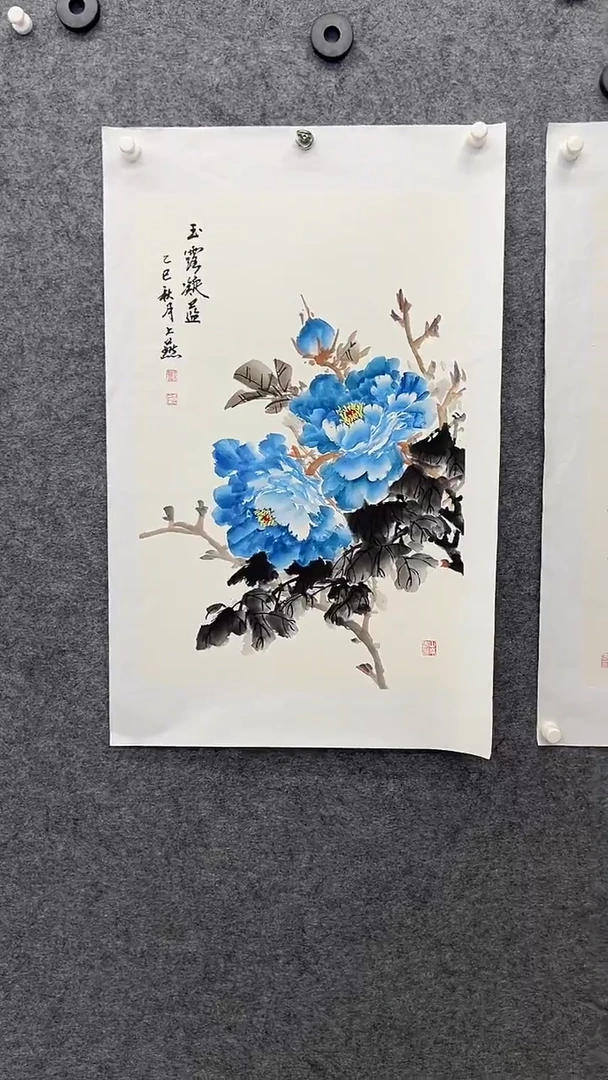 玉露凝蓝
乙巳秋月上燕